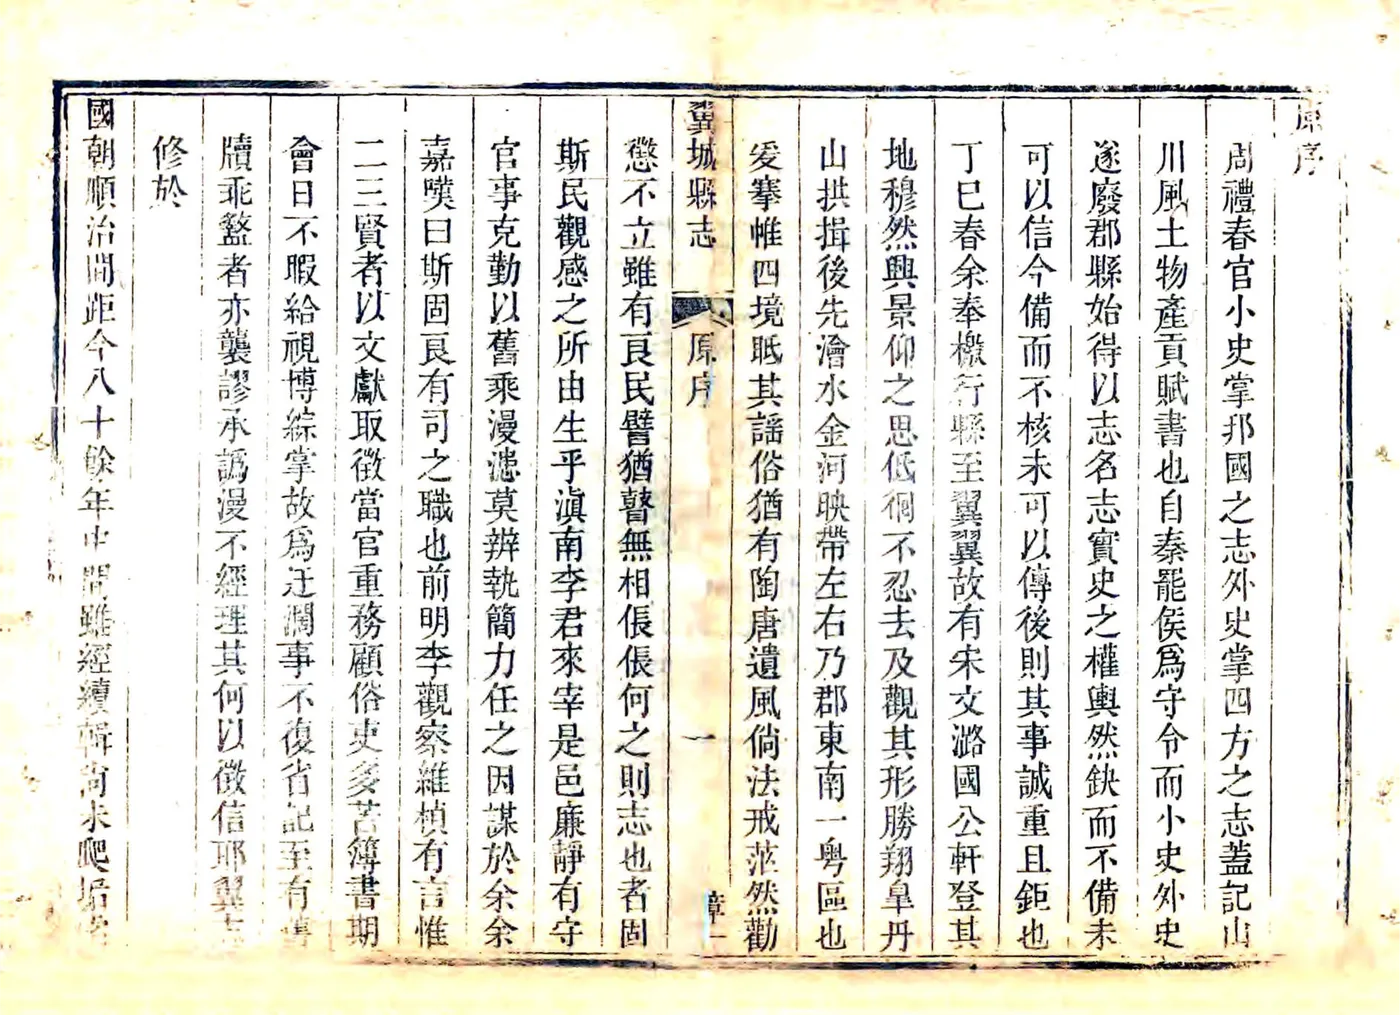 原序
周禮春官小史掌邦國之志外史掌四方之志蓋記山
川風土物產貢賦書也自秦罷侯爲守令而小史外史
遂廢郡縣始得以志名志實史之權輿然缺而不備未
可以信今備而不核未可以傳後則其事誠重且鉅也
丁巳春余奉檄行縣至翼翼故有宋文潞國公軒登其
地穆然興景仰之思低徊不忍去及觀其形勝翔臯丹
山拱揖後先澮水金河映帶左右乃郡東南一粤區也
爰搴帷四境眡其謡俗猶有陶唐遺風倘法戒茫然勸
翼城縣志
原序
一
懲不立雖有良民譬猶瞽無相倀倀何之則志也者固
斯民觀感之所由生乎滇南李君來宰是邑廉靜有守
官事克勤以舊乘漫漶莫辨執簡力任之因謀於余余
嘉嘆曰斯固良有司之職也前明李觀察維楨有言惟
二三賢者以文獻取徵當官重務顧俗吏多苦簿書期
會日不暇給視博綜掌故爲迂濶事不復省記至有
牘乖盭者亦襲謬承譌漫不經理其何以徵信耶翼志
修於
國朝順治間距今八十餘年中間雖經續輯尚未爬垢